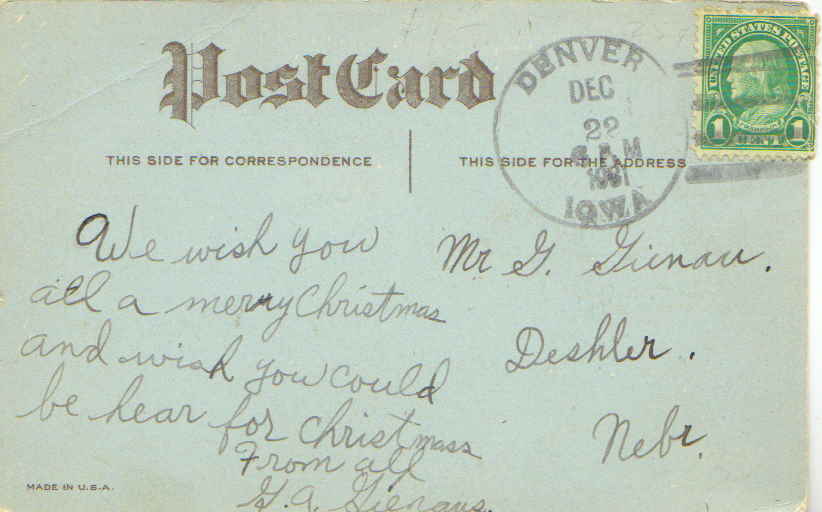 Post Card
THIS SIDE FOR CORRESPONDENCE
THIS SIDE FOR THE ADDRESS
DENVER
DEC
22
A M
1931
IOWA
UNITED STATES POSTAGE
FRANKLIN
1 CENT 1
We wish you
all a merry Christmas
and wish you could
be hear for Christmass
From all
G. A. Gienaus.
Mr G. Gienau.
Deshler.
Nebr.
MADE IN U.S.A.